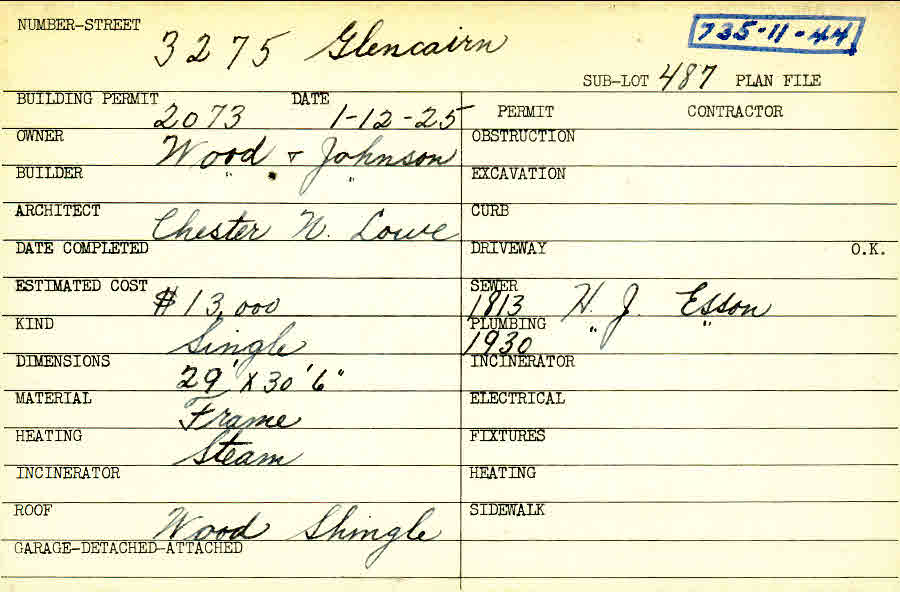 NUMBER-STREET 3275 Glencairn 735-11-44
SUB-LOT 487 PLAN FILE
BUILDING PERMIT 2073 DATE 1-12-25
PERMIT CONTRACTOR
OWNER Wood + Johnson
OBSTRUCTION
BUILDER " " "
EXCAVATION
ARCHITECT Chester N. Lowe
CURB
DATE COMPLETED
DRIVEWAY O.K.
ESTIMATED COST $13,000
SEWER 1813 H. J. Esson
KIND Single
PLUMBING 1930 " "
DIMENSIONS 29' x 30'6"
INCINERATOR
MATERIAL Frame
ELECTRICAL
HEATING Steam
FIXTURES
INCINERATOR
HEATING
ROOF Wood Shingle
SIDEWALK
GARAGE-DETACHED-ATTACHED